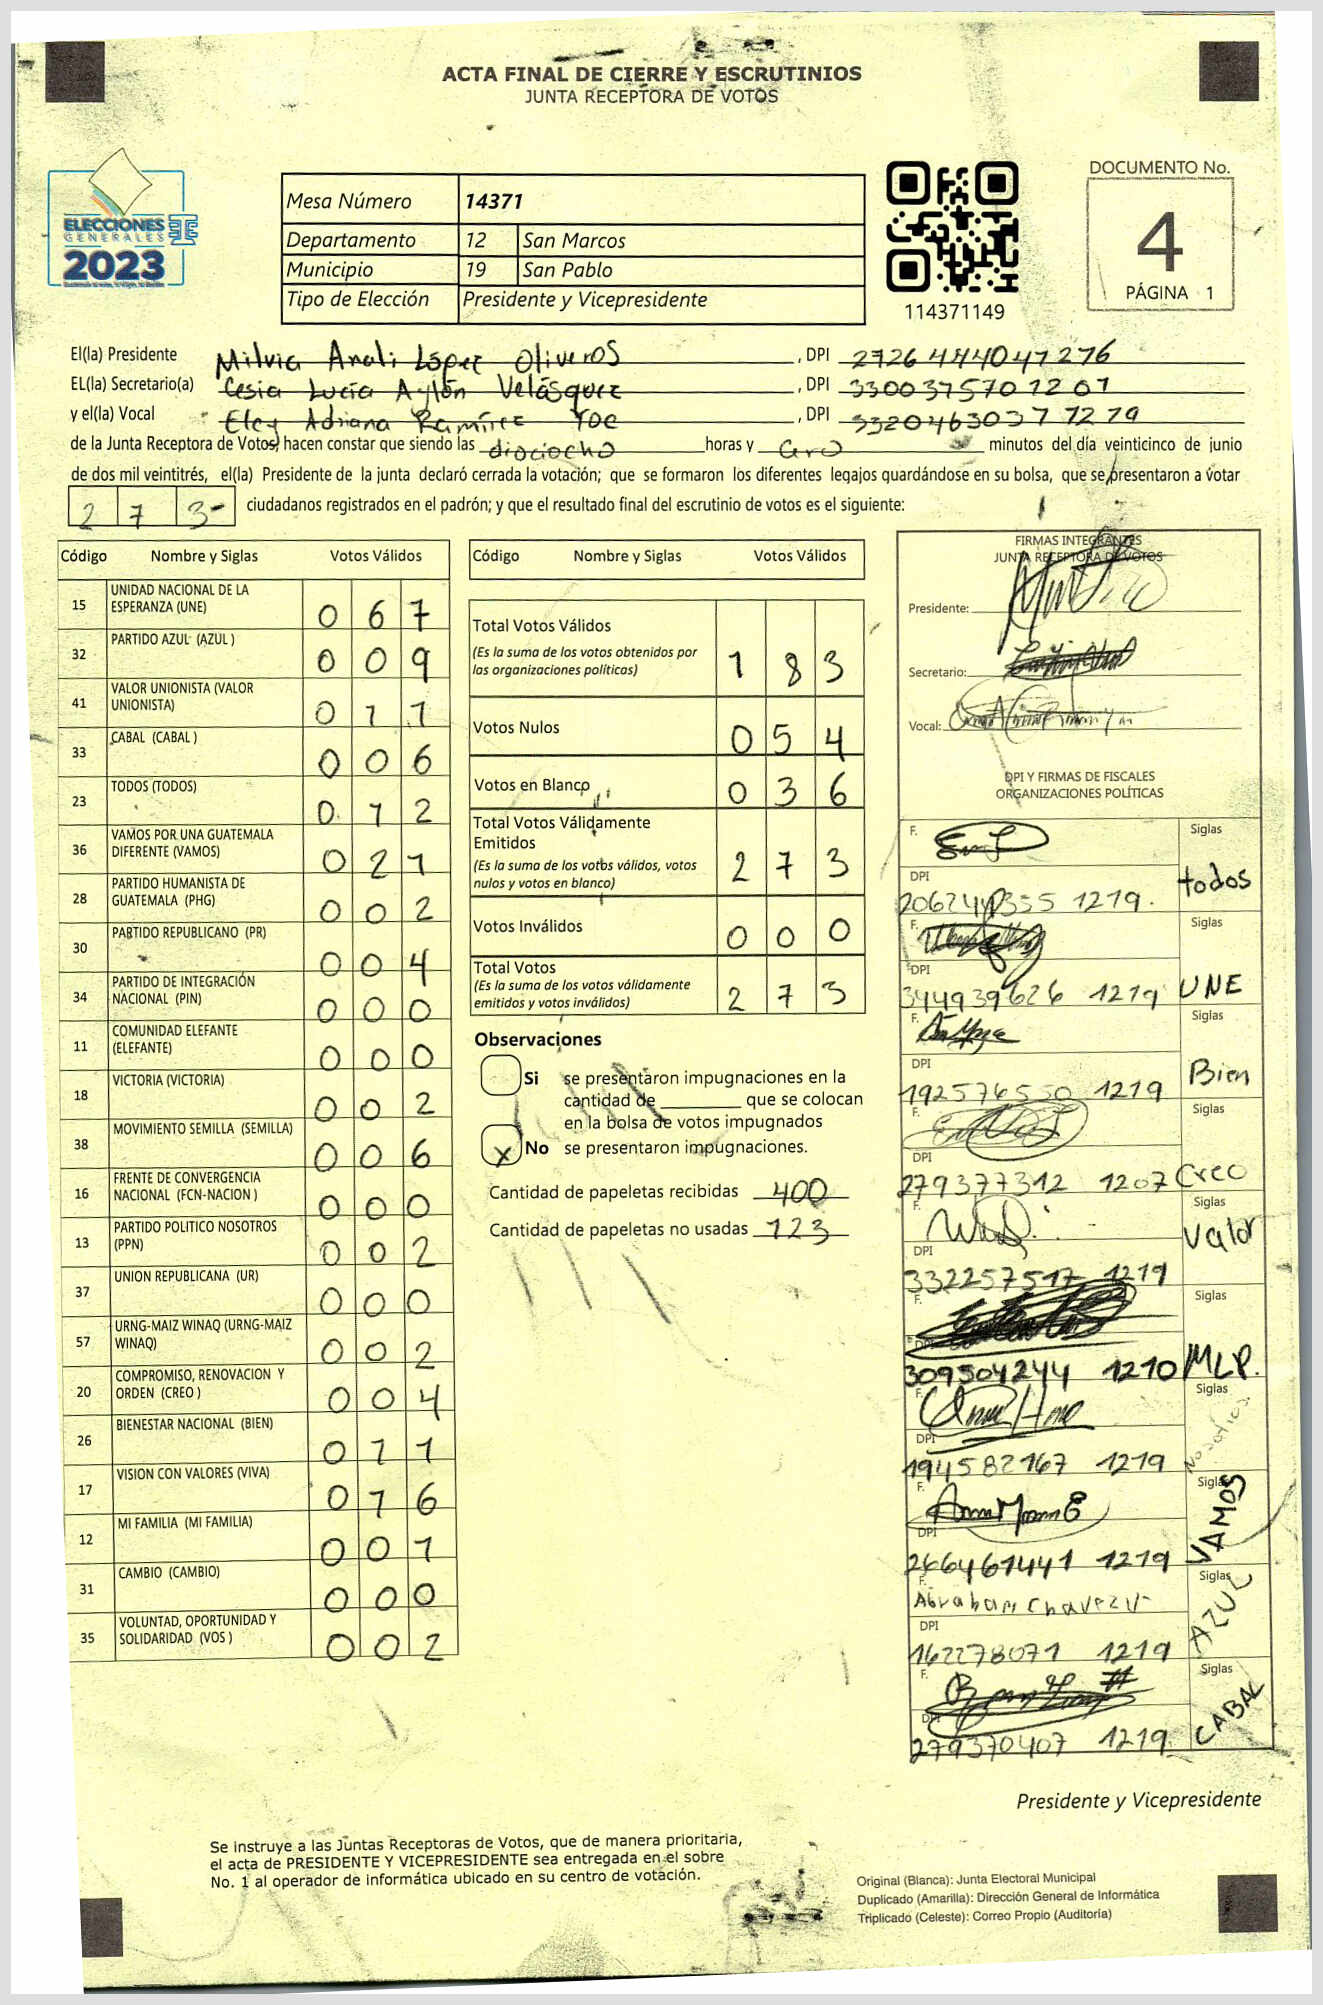 ACTA FINAL DE CIERRE Y ESCRUTINIOS
JUNTA RECEPTORA DE VOTOS
ELECCIONES
GENERALES
2023
Mesa Número 14371
Departamento 12 San Marcos
Municipio 19 San Pablo
Tipo de Elección Presidente y Vicepresidente
114371149
DOCUMENTO No.
4
PÁGINA 1
El(la) Presidente Milvia Anali López Oliveros , DPI 2726 444041 276
EL(la) Secretario(a) Cesia Lucía Aylón Velásquez , DPI 330037570 1201
y el(la) Vocal Eley Adriana Ramírez , DPI 332046303 7 1219
de la Junta Receptora de Votos, hacen constar que siendo las diociocho horas y cero minutos del día veinticinco de junio
de dos mil veintitrés, el(la) Presidente de la junta declaró cerrada la votación; que se formaron los diferentes legajos guardándose en su bolsa, que se presentaron a votar
2 7 3 ciudadanos registrados en el padrón; y que el resultado final del escrutinio de votos es el siguiente:
Código Nombre y Siglas Votos Válidos
15 UNIDAD NACIONAL DE LA ESPERANZA (UNE) 0 6 7
32 PARTIDO AZUL (AZUL ) 0 0 9
41 VALOR UNIONISTA (VALOR UNIONISTA) 0 1 1
33 CABAL (CABAL ) 0 0 6
23 TODOS (TODOS) 0 1 2
36 VAMOS POR UNA GUATEMALA DIFERENTE (VAMOS) 0 2 1
28 PARTIDO HUMANISTA DE GUATEMALA (PHG) 0 0 2
30 PARTIDO REPUBLICANO (PR) 0 0 4
34 PARTIDO DE INTEGRACIÓN NACIONAL (PIN) 0 0 0
11 COMUNIDAD ELEFANTE (ELEFANTE) 0 0 0
18 VICTORIA (VICTORIA) 0 0 2
38 MOVIMIENTO SEMILLA (SEMILLA) 0 0 6
16 FRENTE DE CONVERGENCIA NACIONAL (FCN-NACION ) 0 0 0
13 PARTIDO POLITICO NOSOTROS (PPN) 0 0 2
37 UNION REPUBLICANA (UR) 0 0 0
57 URNG-MAIZ WINAQ (URNG-MAIZ WINAQ) 0 0 2
20 COMPROMISO, RENOVACION Y ORDEN (CREO ) 0 0 4
26 BIENESTAR NACIONAL (BIEN) 0 1 1
17 VISION CON VALORES (VIVA) 0 1 6
12 MI FAMILIA (MI FAMILIA) 0 0 1
31 CAMBIO (CAMBIO) 0 0 0
35 VOLUNTAD, OPORTUNIDAD Y SOLIDARIDAD (VOS ) 0 0 2
Código Nombre y Siglas Votos Válidos
Total Votos Válidos 1 8 3
(Es la suma de los votos obtenidos por
las organizaciones políticas)
Votos Nulos 0 5 4
Votos en Blanco 0 3 6
Total Votos Válidamente
Emitidos 2 7 3
(Es la suma de los votos válidos, votos
nulos y votos en blanco)
Votos Inválidos 0 0 0
Total Votos 2 7 3
(Es la suma de los votos válidamente
emitidos y votos inválidos)
Observaciones
Si se presentaron impugnaciones en la
cantidad de ________ que se colocan
en la bolsa de votos impugnados
X No se presentaron impugnaciones.
Cantidad de papeletas recibidas 400
Cantidad de papeletas no usadas 123
FIRMAS INTEGRANTES
JUNTA RECEPTORA DE VOTOS
Presidente:
Secretario:
Vocal:
DPI Y FIRMAS DE FISCALES
ORGANIZACIONES POLÍTICAS
F. Siglas
DPI todos
1219.
F. Siglas
DPI UNE
344939626 1219
F. Siglas
DPI Bien
192576550 1219
F. Siglas
DPI Creo
279377312 1207
F. Siglas
DPI Valor
332257517 1219
F. Siglas
DPI MLP.
309504244 1210
F. Siglas
DPI Nosotros.
194582167 1219
F. Siglas
DPI VAMOS
266461441 1219
F. Abraham Chavez V Siglas
DPI AZUL
162278071 1219
F. Siglas
DPI CABAL
279370407 1219
Presidente y Vicepresidente
Se instruye a las Juntas Receptoras de Votos, que de manera prioritaria,
el acta de PRESIDENTE Y VICEPRESIDENTE sea entregada en el sobre
No. 1 al operador de informática ubicado en su centro de votación.
Original (Blanca): Junta Electoral Municipal
Duplicado (Amarilla): Dirección General de Informática
Triplicado (Celeste): Correo Propio (Auditoría)